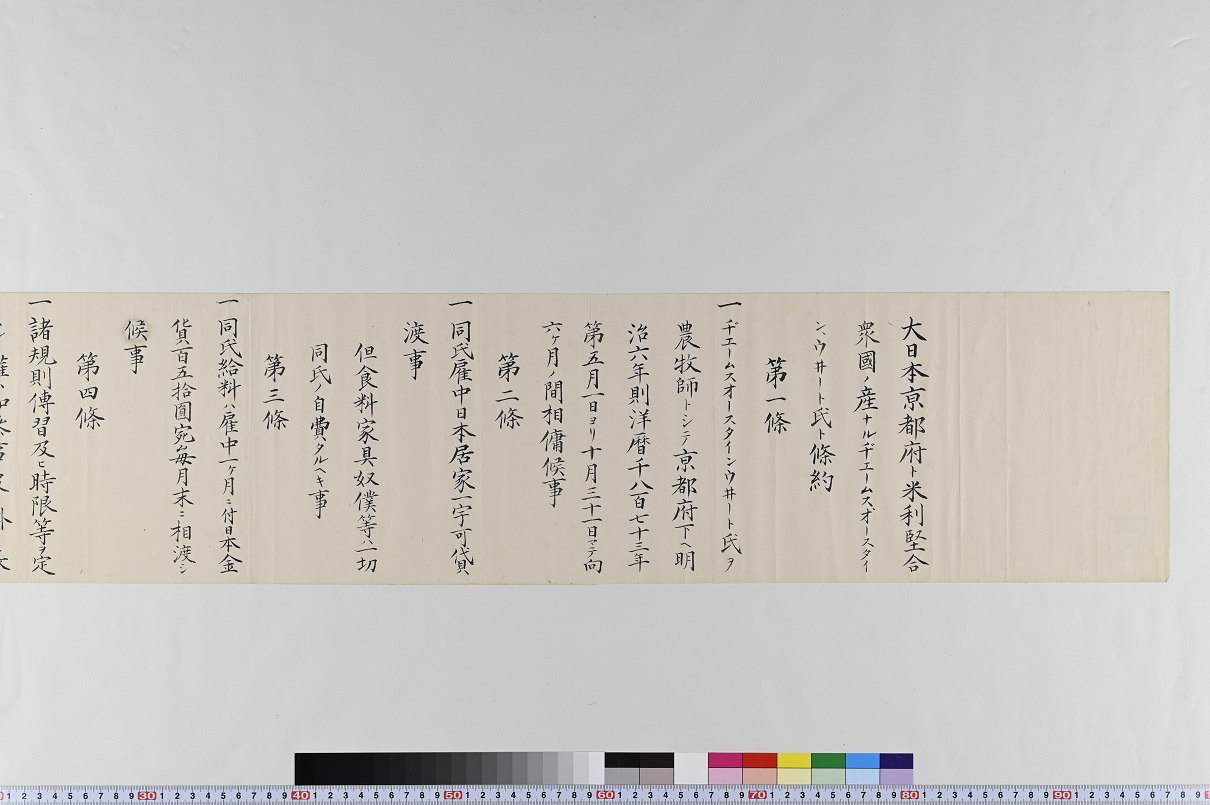 大日本京都府ト米利堅合
衆國ノ産ナルヂエームスオースタイ
ン、ウヰート氏ト條約
第一條
一ヂエームスオースタインウヰート氏ヲ
農牧師トシテ京都府下ヘ明
治六年則洋暦千八百七十三年
第五月一日ヨリ十月三十一日マテ向
六ケ月ノ間相傭候事
第二條
一同氏雇中日本居家一宇可貸
渡事
但食料家具奴僕等ハ一切
同氏ノ自費タルヘキ事
第三條
一同氏給料ハ雇中一ケ月ニ付日本金
貨百五拾圓宛毎月末ニ相渡シ
候事
第四條
一諸規則傳習及ヒ時限等ヲ定